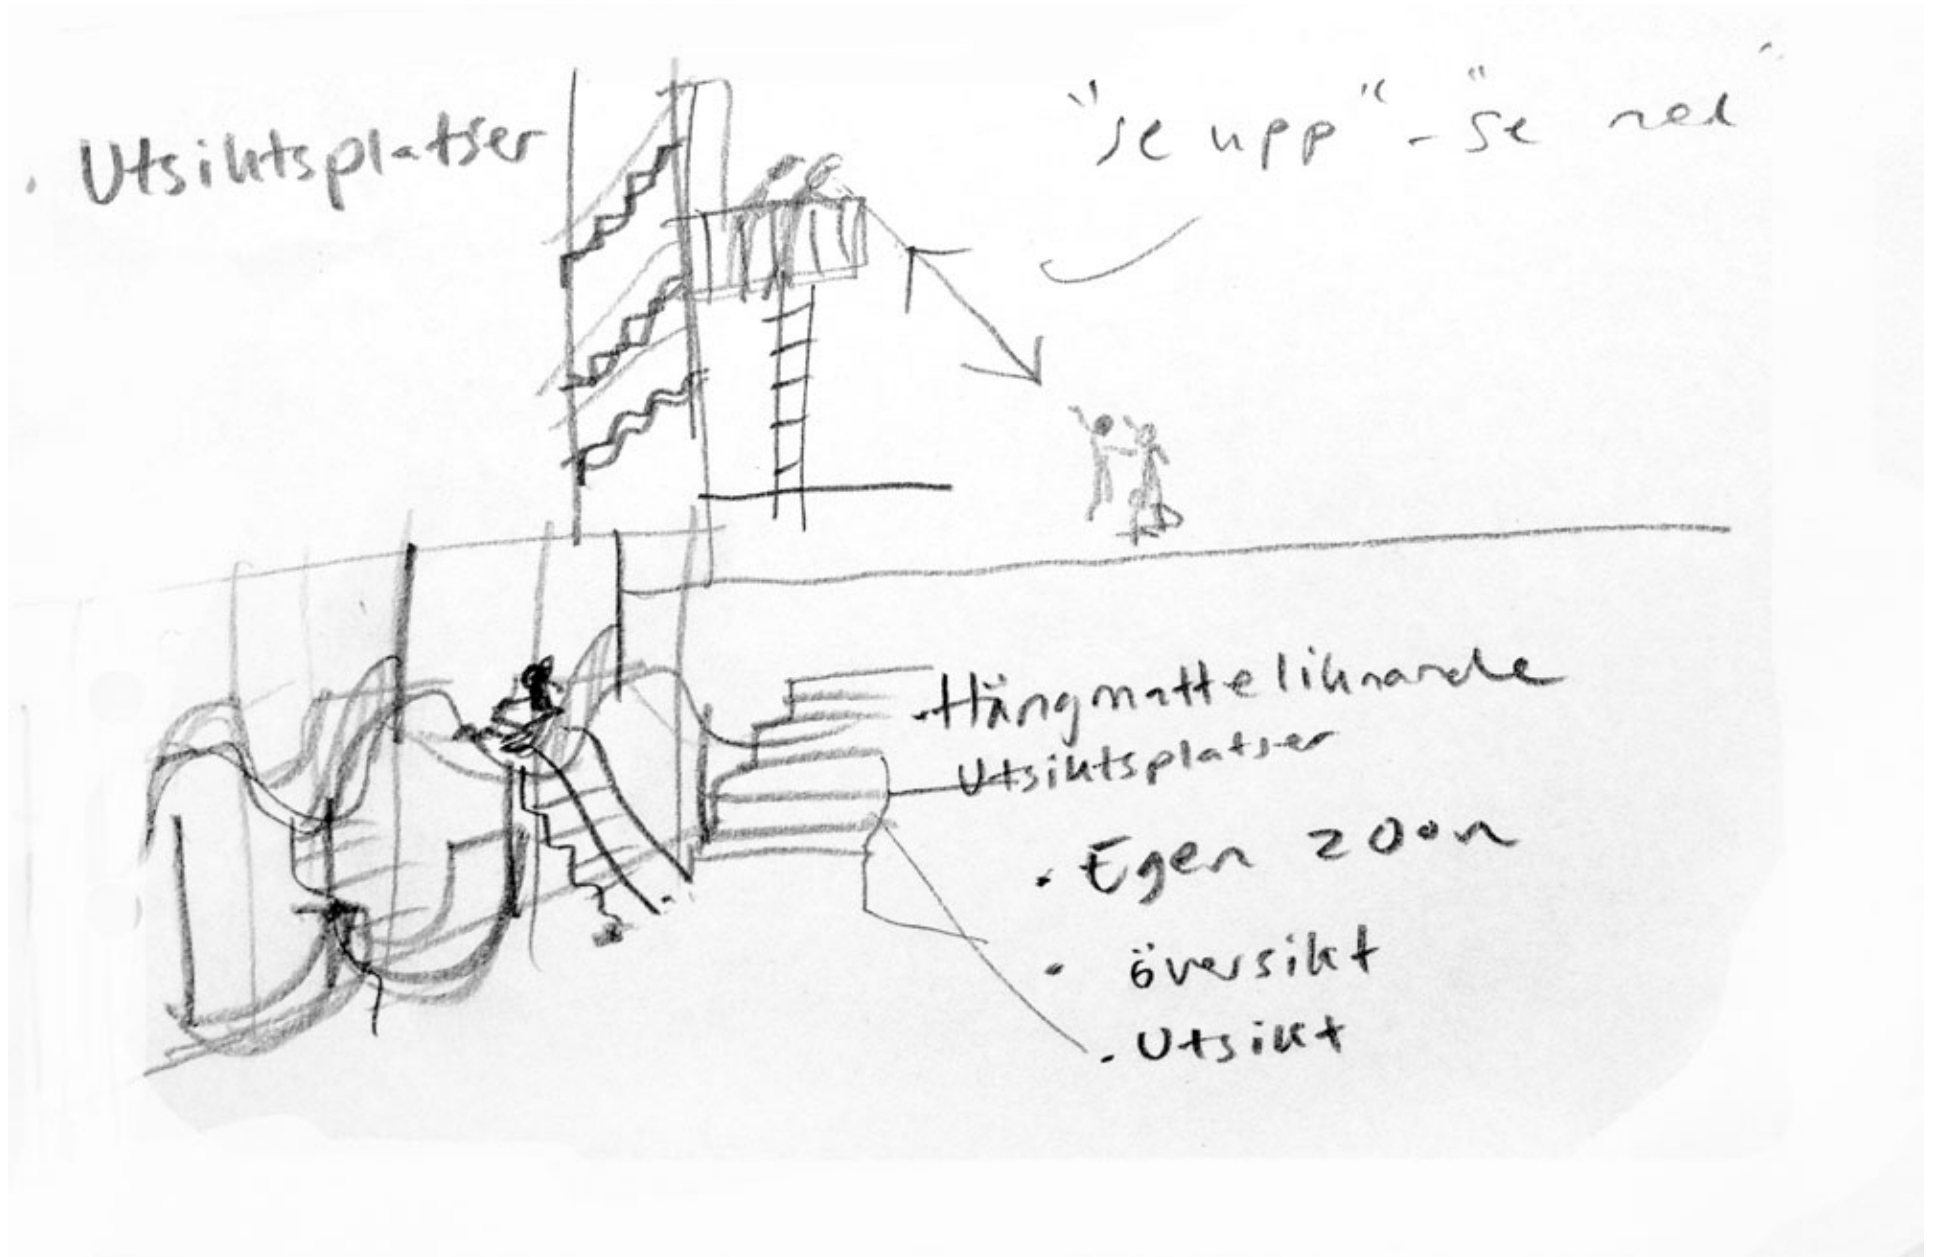 · Utsiktsplatser
"se upp" - "se ned"
· Hängmatteliknande
utsiktsplatser
· Egen zoon
· översikt
· Utsikt